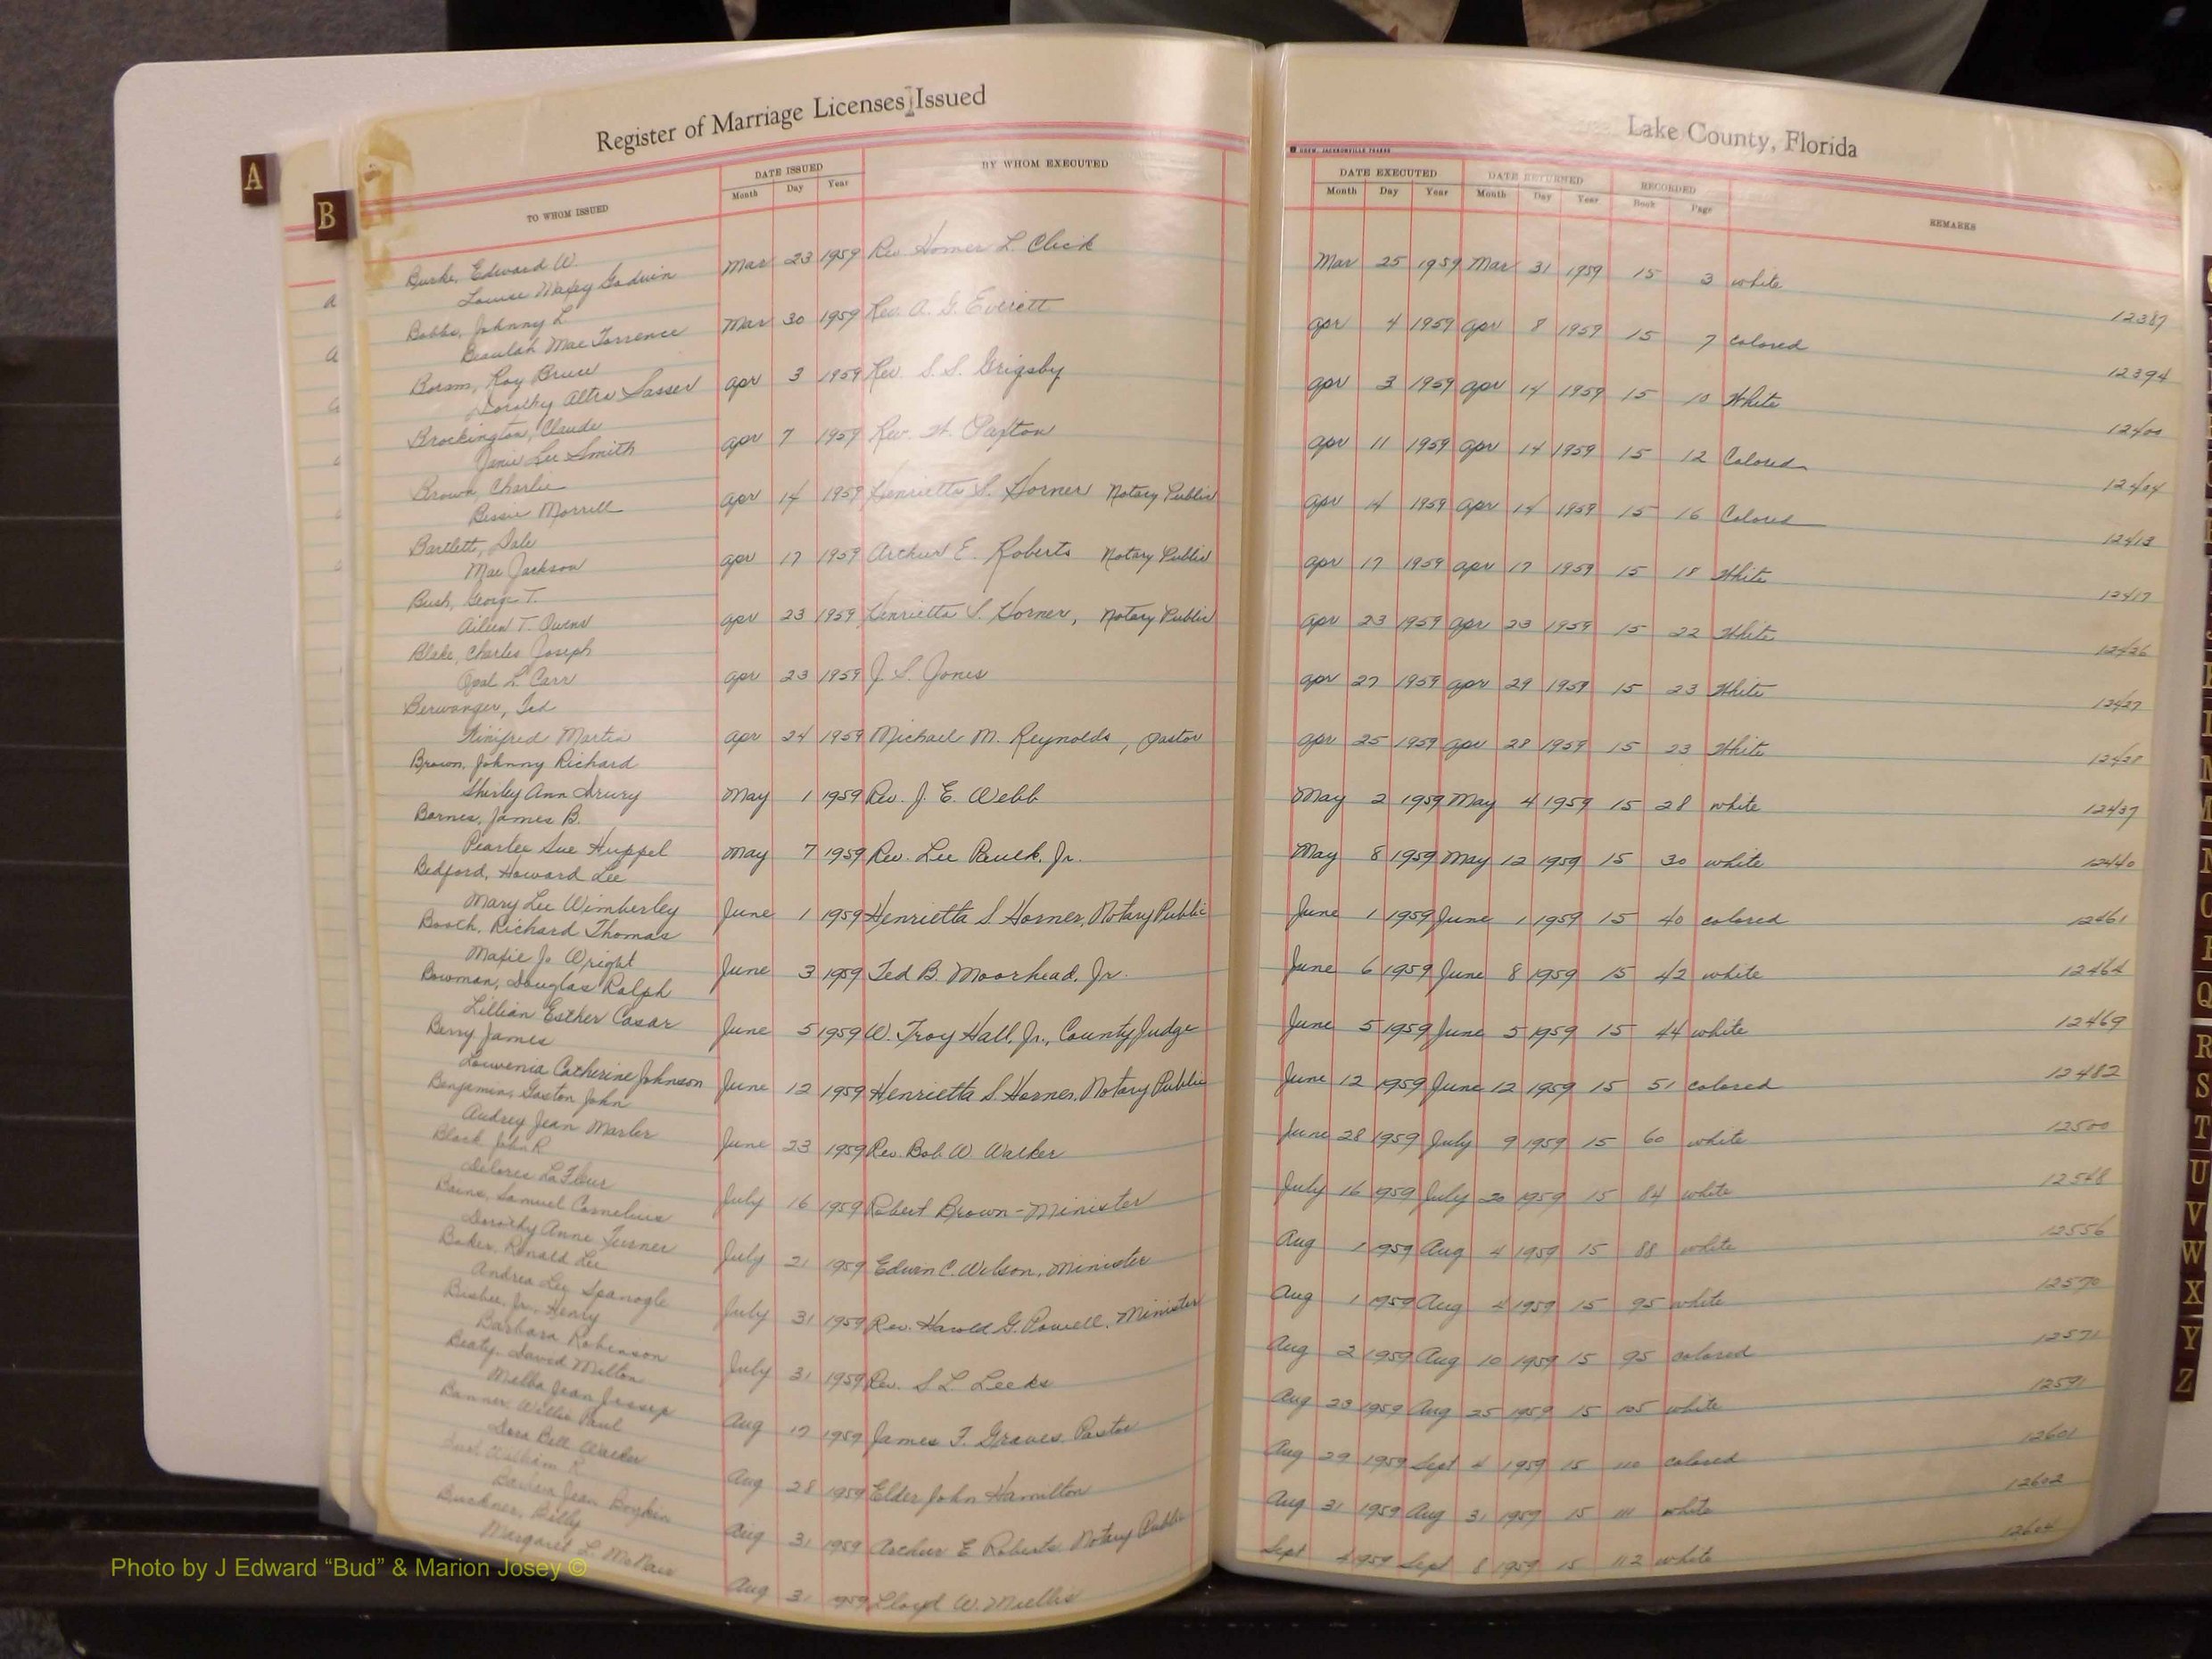 Register of Marriage Licenses Issued
TO WHOM ISSUED
DATE ISSUED
Month Day Year
BY WHOM EXECUTED
A
B
Burke, Edward W.
Louise Maxey Godwin
Mar 23 1959 Rev Homer L. Click
Bobbs, Johnny L
Beaulah Mae Torrence
Mar 30 1959 Rev. A. G. Everett
Roy Bruce
Dorothy Altra Sasser
Apr 3 1959 Rev. S. S. Grigsby
Brockington, Claude
Janie Lee Smith
Apr 7 1959 Rev. H. Paxton
Brown, Charlie
Bessie Morrell
Apr 14 1959 Henrietta S. Horner Notary Public
Bartlett, Dale
Mae Jackson
Apr 17 1959 Arthur E. Roberts Notary Public
Bush, George T.
Aileen T. Owens
Apr 23 1959 Henrietta S. Horner, Notary Public
Blake, Charles Joseph
Opal L. Carr
Apr 23 1959 J. S. Jones
Berwanger, Ted
Winifred Martin
Apr 24 1959 Michael M. Reynolds, Pastor
Brown, Johnny Richard
Shirley Ann Drury
May 1 1959 Rev. J. E. Webb
Barnes, James B.
Pearlee Sue Huppel
May 7 1959 Rev. Lee Jr.
Bedford, Howard Lee
Mary Lee Wimberley
June 1 1959 Henrietta S. Horner, Notary Public
Booth, Richard Thomas
Maxie Jo Wright
June 3 1959 Ted B. Moorhead, Jr.
Bowman, Douglas Ralph
Lillian Esther Casar
June 5 1959 W. Troy Hall, Jr., County Judge
Berry, James
Louvenia Catherine Johnson
June 12 1959 Henrietta S. Horner, Notary Public
Benjamin, Gaston John
Audrey Jean Marler
June 23 1959 Rev. Bob W. Walker
Black, John R
Delores LaFleur
July 16 1959 Robert Brown - Minister
Samuel Cornelius
Dorothy Anne Turner
July 21 1959 Edwin C. Wilson, Minister
Baker, Ronald Lee
Andrea Lee Spanogle
July 31 1959 Rev. Harold G. Powell, Minister
Busbee, Jr., Henry
Barbara Robinson
July 31 1959 Rev. S L. Leeks
Beaty, David Milton
Melba Jean Jessup
Aug 17 1959 James F. Graves Pastor
Willie Paul
Dora Bell Walker
Aug 28 1959 Elder John Hamilton
William R.
Barbara Jean
Aug 31 1959 Arthur E Roberts Notary Public
Buckner, Billy
Margaret L. McNair
Aug 31 1959 Lloyd W.
Lake County, Florida
DATE EXECUTED DATE RETURNED RECORDED REMARKS
Month Day Year Month Day Year Book Page
Mar 25 1959 Mar 31 1959 15 3 white 12387
Apr 4 1959 Apr 8 1959 15 7 colored 12394
Apr 3 1959 Apr 14 1959 15 10 White 12400
Apr 11 1959 Apr 14 1959 15 12 Colored 12404
Apr 14 1959 Apr 14 1959 15 16 Colored 12413
Apr 17 1959 Apr 17 1959 15 18 White 12417
Apr 23 1959 Apr 23 1959 15 22 White 12426
Apr 27 1959 Apr 29 1959 15 23 White 12427
Apr 25 1959 Apr 28 1959 15 23 White 12428
May 2 1959 May 4 1959 15 28 white 12437
May 8 1959 May 12 1959 15 30 white 12440
June 1 1959 June 1 1959 15 40 colored 12461
June 6 1959 June 8 1959 15 42 white 12464
June 5 1959 June 5 1959 15 44 white 12469
June 12 1959 June 12 1959 15 51 colored 12482
June 28 1959 July 9 1959 15 60 white 12500
July 16 1959 July 20 1959 15 84 white 12548
Aug 1 1959 Aug 4 1959 15 88 white 12556
Aug 1 1959 Aug 4 1959 15 95 white 12570
Aug 2 1959 Aug 10 1959 15 95 colored 12571
Aug 23 1959 Aug 25 1959 15 105 white 12591
Aug 29 1959 Sept 4 1959 15 110 colored 12601
Aug 31 1959 Aug 31 1959 15 111 white 12602
Sept 4 1959 Sept 8 1959 15 112 white 12604
Q
R
S
T
U
V
W
X
Y
Z
Photo by J Edward “Bud” & Marion Josey ©